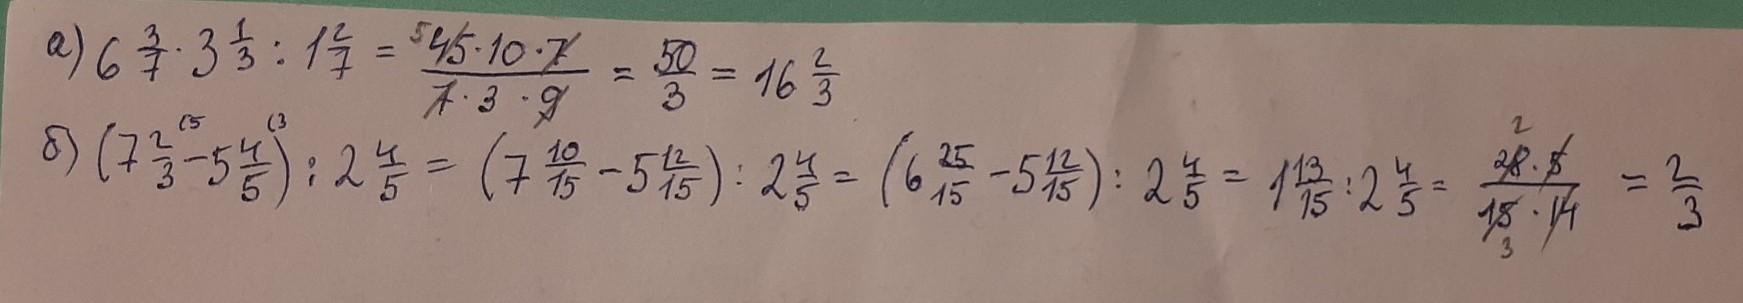 а) 6 3/7 · 3 1/3 : 1 2/7 = 5 45·10·7 / 7·3·9 = 50/3 = 16 2/3
б) (7 2/3 (5 - 5 4/5 (3) : 2 4/5 = (7 10/15 - 5 12/15) : 2 4/5 = (6 25/15 - 5 12/15) : 2 4/5 = 1 13/15 : 2 4/5 = 2 28·5 / 15·14 3 = 2/3